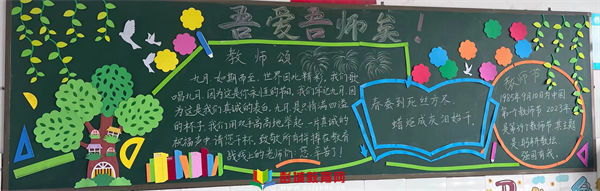 吾爱吾师矣！
教师颂
九月，如期而至，世界因此精彩，我们歌
唱九月，因为这是你永恒的节日，我们牢记九月，因
为这是我们真诚的表白，九月，是只待满四溢
的杯子，我们用双手高高地举起，一片真诚的
祝福声中请您干杯，致敬所有拼搏在教育
战线上的老师们：您，辛苦了！
春蚕到死丝方尽，
蜡炬成灰泪始干。
教师节
1985年9月10日为中国
第一个教师节，2023年
是第39个教师节，其主题
是：躬耕教坛，
强国有我。